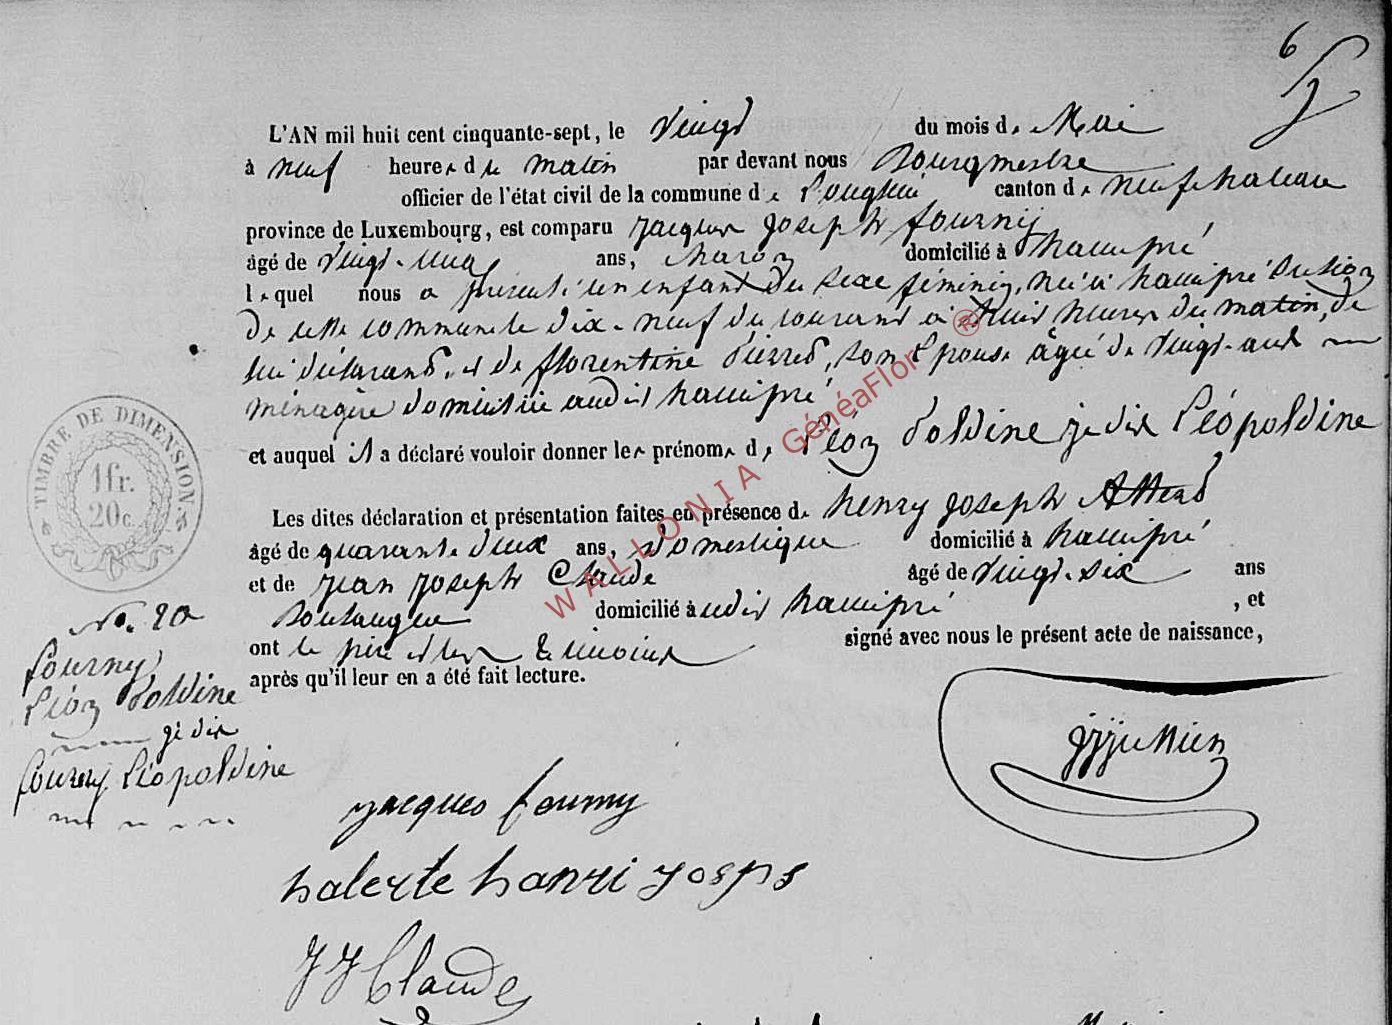 6
L'AN mil huit cent cinquante-sept, le vingt du mois de Mai
à neuf heures du matin par devant nous Bourgmestre
officier de l'état civil de la commune de Longlier canton de Neufchateau
province de Luxembourg, est comparu jacques joseph fourny
âgé de vingt-un ans, charon domicilié à hamipré
lequel nous a présenté un enfant du sexe féminin, né à hamipré Section
de cette commune le dix-neuf du courant à huit heures du matin, de
lui déclarant, et de florentine Pierret, son épouse âgée de vingt- ans
ménagère domiciliée audit hamipré
et auquel il a déclaré vouloir donner les prénoms de Léon doldine je dis Léopoldine
Les dites déclaration et présentation faites en présence de henry joseph
âgé de quarante deux ans, domestique domicilié à hamipré
et de jean joseph Claude âgé de vingt-six ans
Boulanger domicilié audit hamipré, et
ont le père et les témoins signé avec nous le présent acte de naissance,
après qu'il leur en a été fait lecture.
TIMBRE DE DIMENSION
1 fr.
20 c.
No. 20
fourny
Léon doldine
je dis
fourny Léopoldine
jacques fourny
halerte hanri josps
JJ Claude
WALLONIA GénéaFlor ®